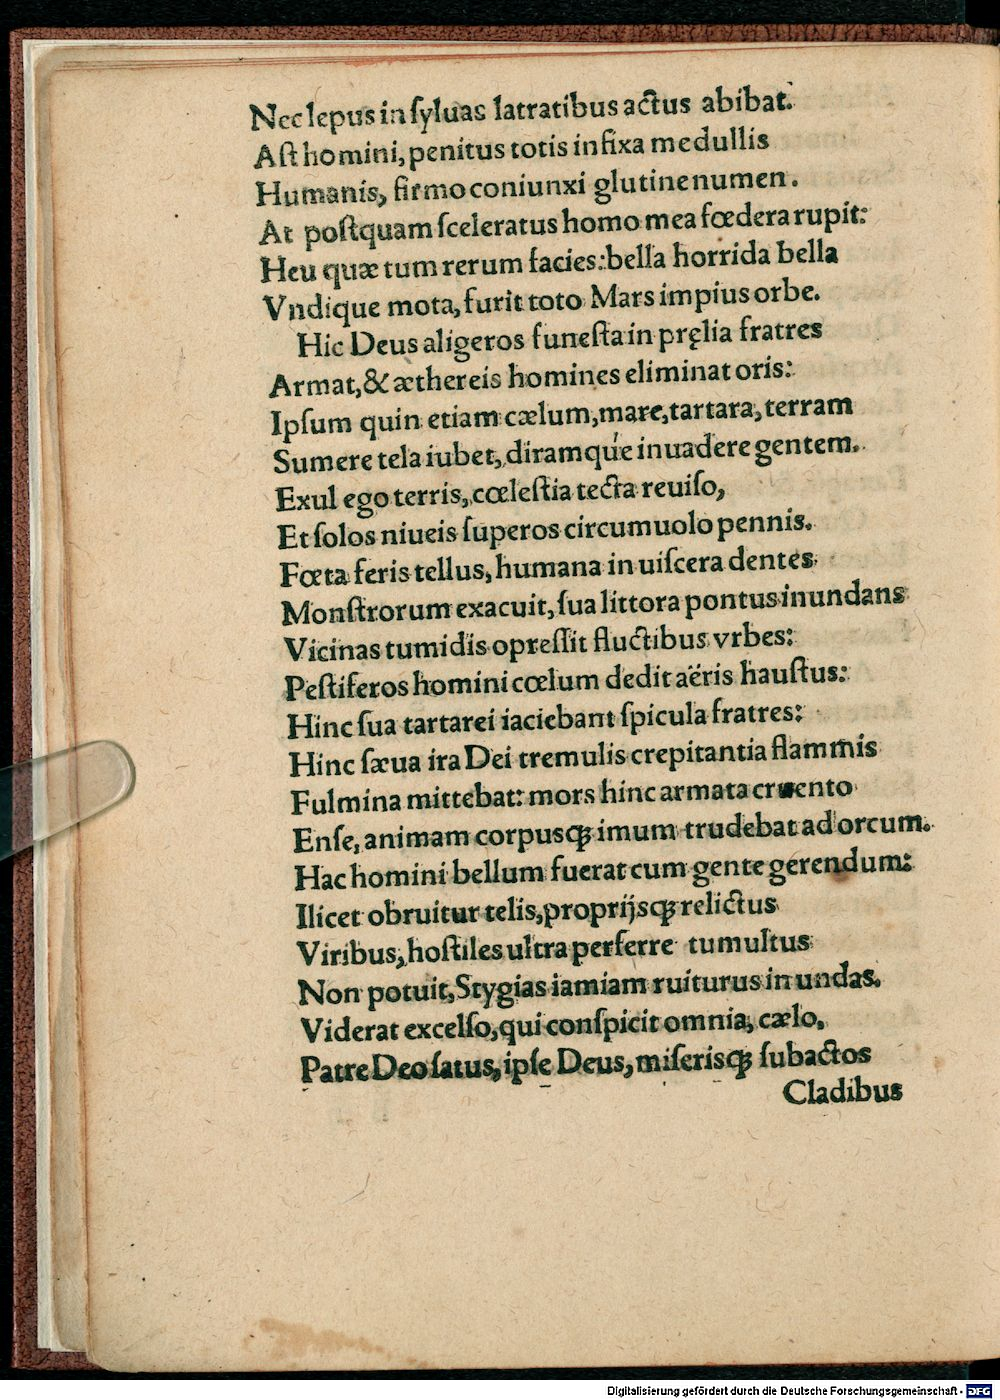 Nec lepus in ſyluas latratibus actus abibat.
Aſt homini, penitus totis infixa medullis
Humanis, firmo coniunxi glutine numen.
At poſtquam ſceleratus homo mea fœdera rupit:
Heu quæ tum rerum facies: bella horrida bella
Vndique mota, furit toto Mars impius orbe.
Hic Deus aligeros funeſta in pręlia fratres
Armat, & æthereis homines eliminat oris:
Ipſum quin etiam cælum, mare, tartara, terram
Sumere tela iubet, diramque inuadere gentem.
Exul ego terris, cœleſtia tecta reuiſo,
Et ſolos niueis ſuperos circumuolo pennis.
Fœta feris tellus, humana in uiſcera dentes
Monſtrorum exacuit, ſua littora pontus inundans
Vicinas tumidis opreſſit fluctibus vrbes:
Peſtiferos homini cœlum dedit aëris hauſtus:
Hinc ſua tartarei iaciebant ſpicula fratres:
Hinc ſæua ira Dei tremulis crepitantia flammis
Fulmina mittebat: mors hinc armata cruento
Enſe, animam corpusqꝫ imum trudebat ad orcum.
Hac homini bellum fuerat cum gente gerendum:
Ilicet obruitur telis, proprijsqꝫ relictus
Viribus, hoſtiles ultra perferre tumultus
Non potuit, Stygias iamiam ruiturus in undas.
Viderat excelſo, qui conſpicit omnia, cælo,
Patre Deo ſatus, ipſe Deus, miſerisqꝫ ſubactos
Cladibus
Digitalisierung gefördert durch die Deutsche Forschungsgemeinschaft - DFG